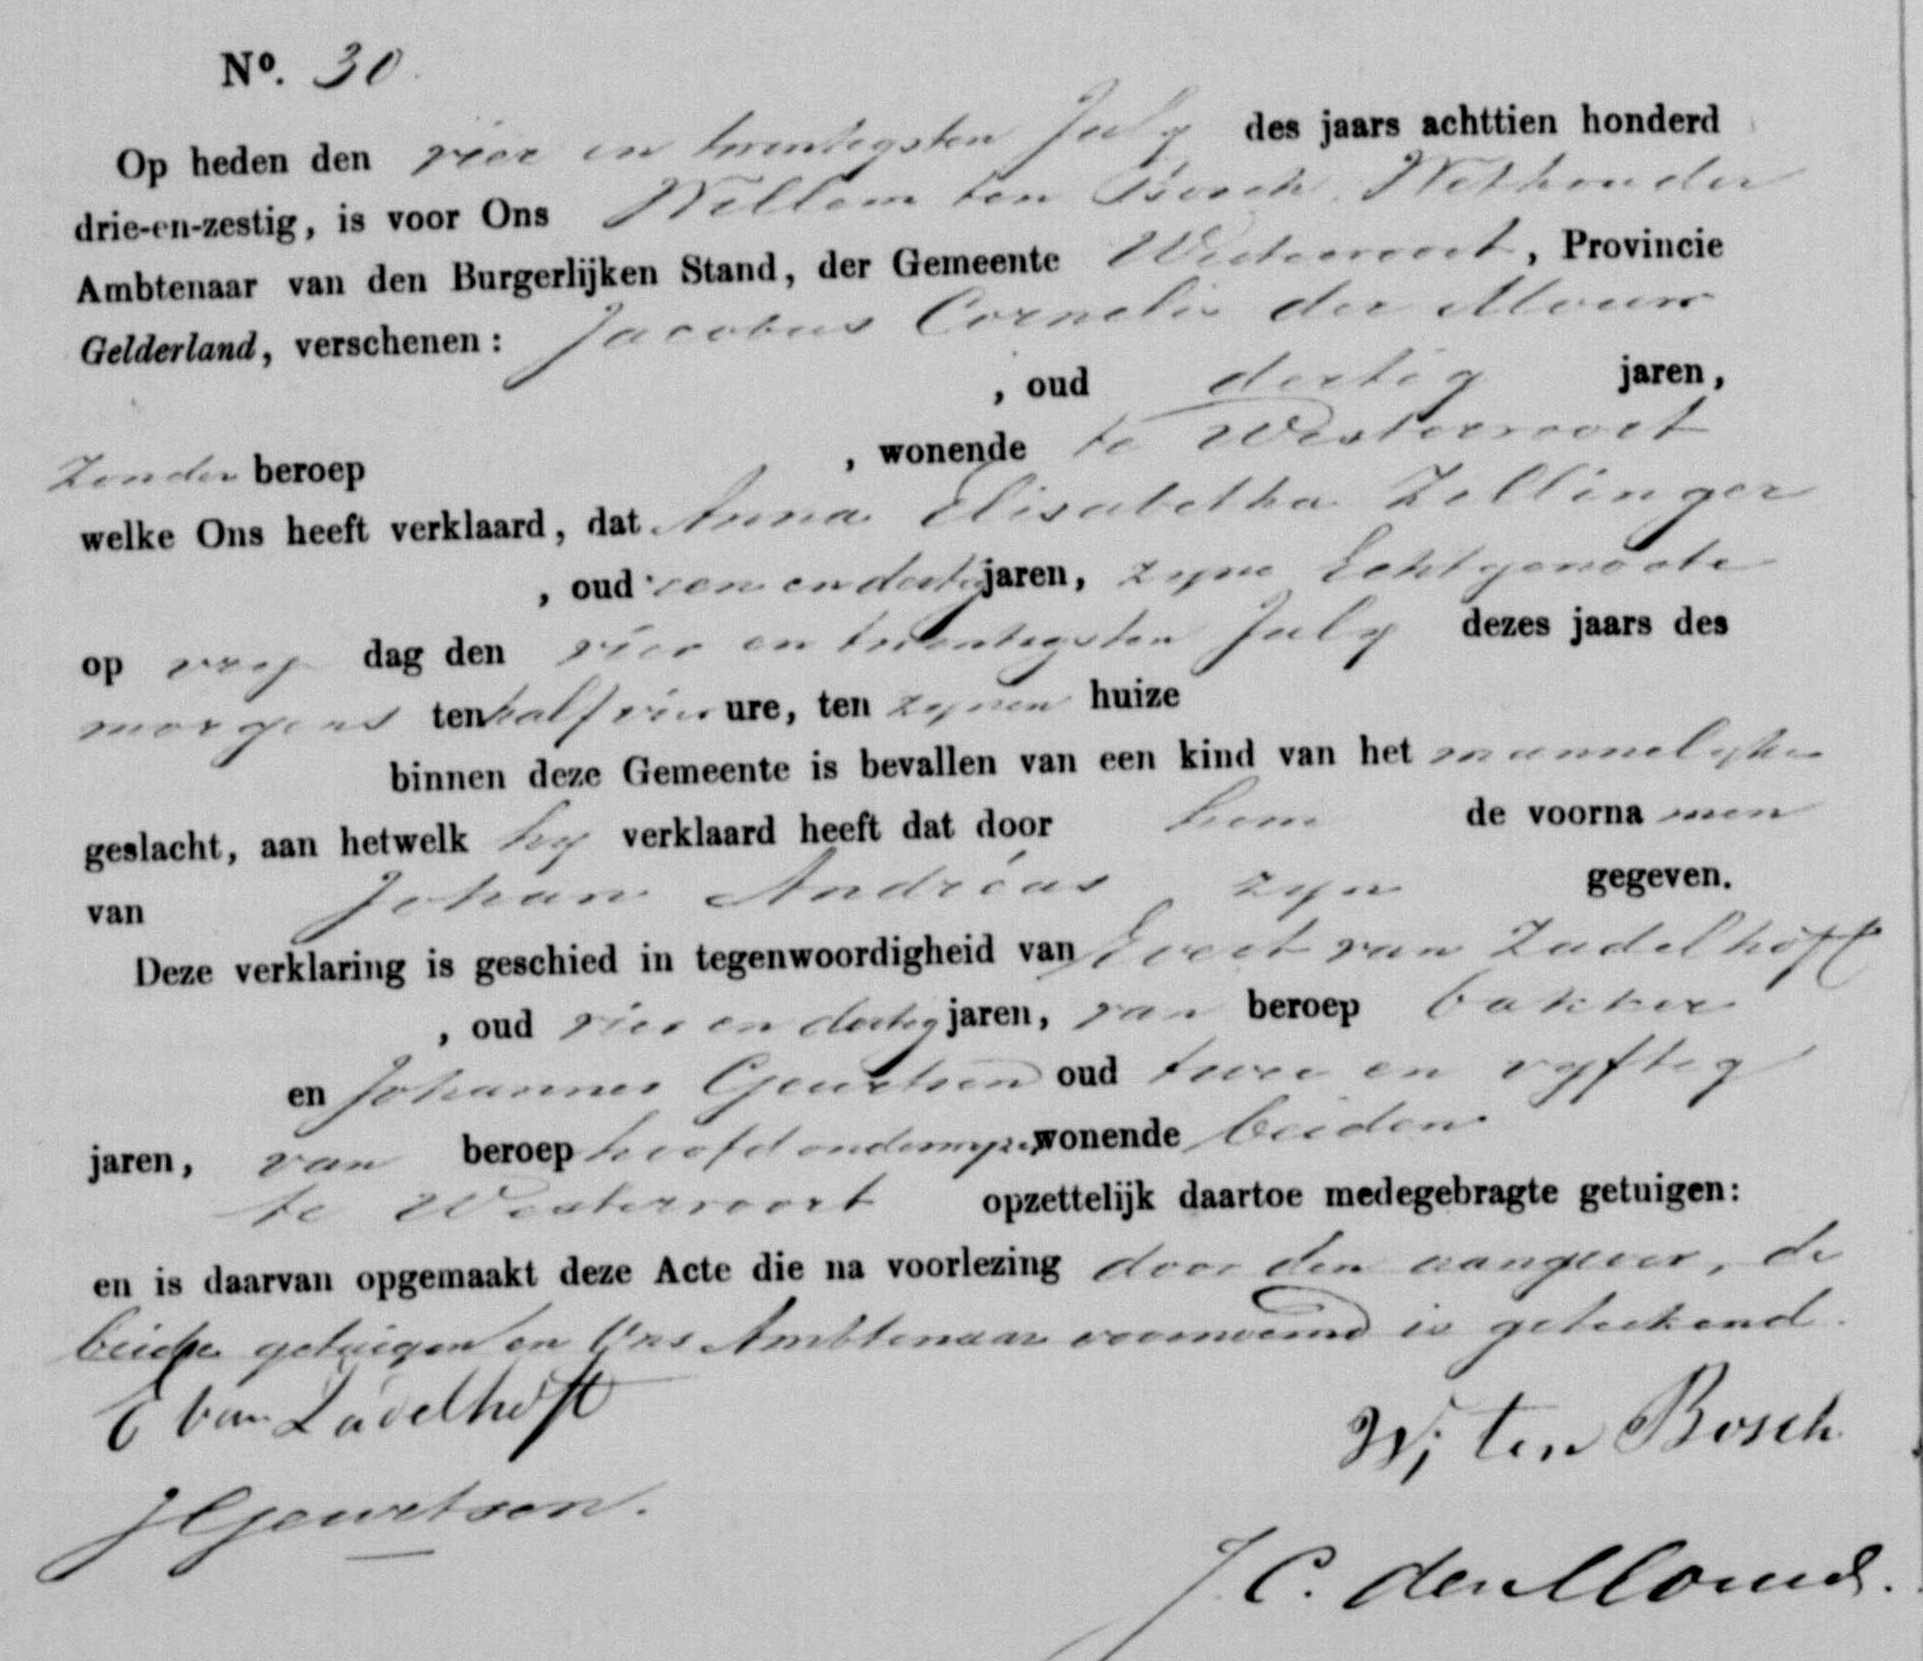 No. 30
Op heden den vier en twintigsten July des jaars achttien honderd
drie-en-zestig, is voor Ons Willem ten Bosch, Wethouder
Ambtenaar van den Burgerlijken Stand, der Gemeente Westervoort, Provincie
Gelderland, verschenen: Jacobus Cornelis der Mouw
, oud dertig jaren,
Zonder beroep , wonende te Westervoort
welke Ons heeft verklaard, dat Anna Elisabetha Zellinger
, oud een en dertig jaren, zyne Echtgenoote
op vry dag den vier en twintigsten July dezes jaars des
morgens ten half vier ure, ten zynen huize
binnen deze Gemeente is bevallen van een kind van het mannelyke
geslacht, aan hetwelk hy verklaard heeft dat door hem de voorna men
van Johan Andréas zyn gegeven.
Deze verklaring is geschied in tegenwoordigheid van Evert van Zadelhoff
, oud vier en dertig jaren, van beroep bakker
en Johannes Geurtsen oud twee en vyftig
jaren, van beroep hoofdonderwyzer, wonende beiden
te Westervoort opzettelijk daartoe medegebragte getuigen:
en is daarvan opgemaakt deze Acte die na voorlezing door den aangever, de
beide getuigen en Ons Ambtenaar voornoemd is geteekend.
E van Zadelhoff
W; ten Bosch
J Geurtsen.
J. C. der Mouw.